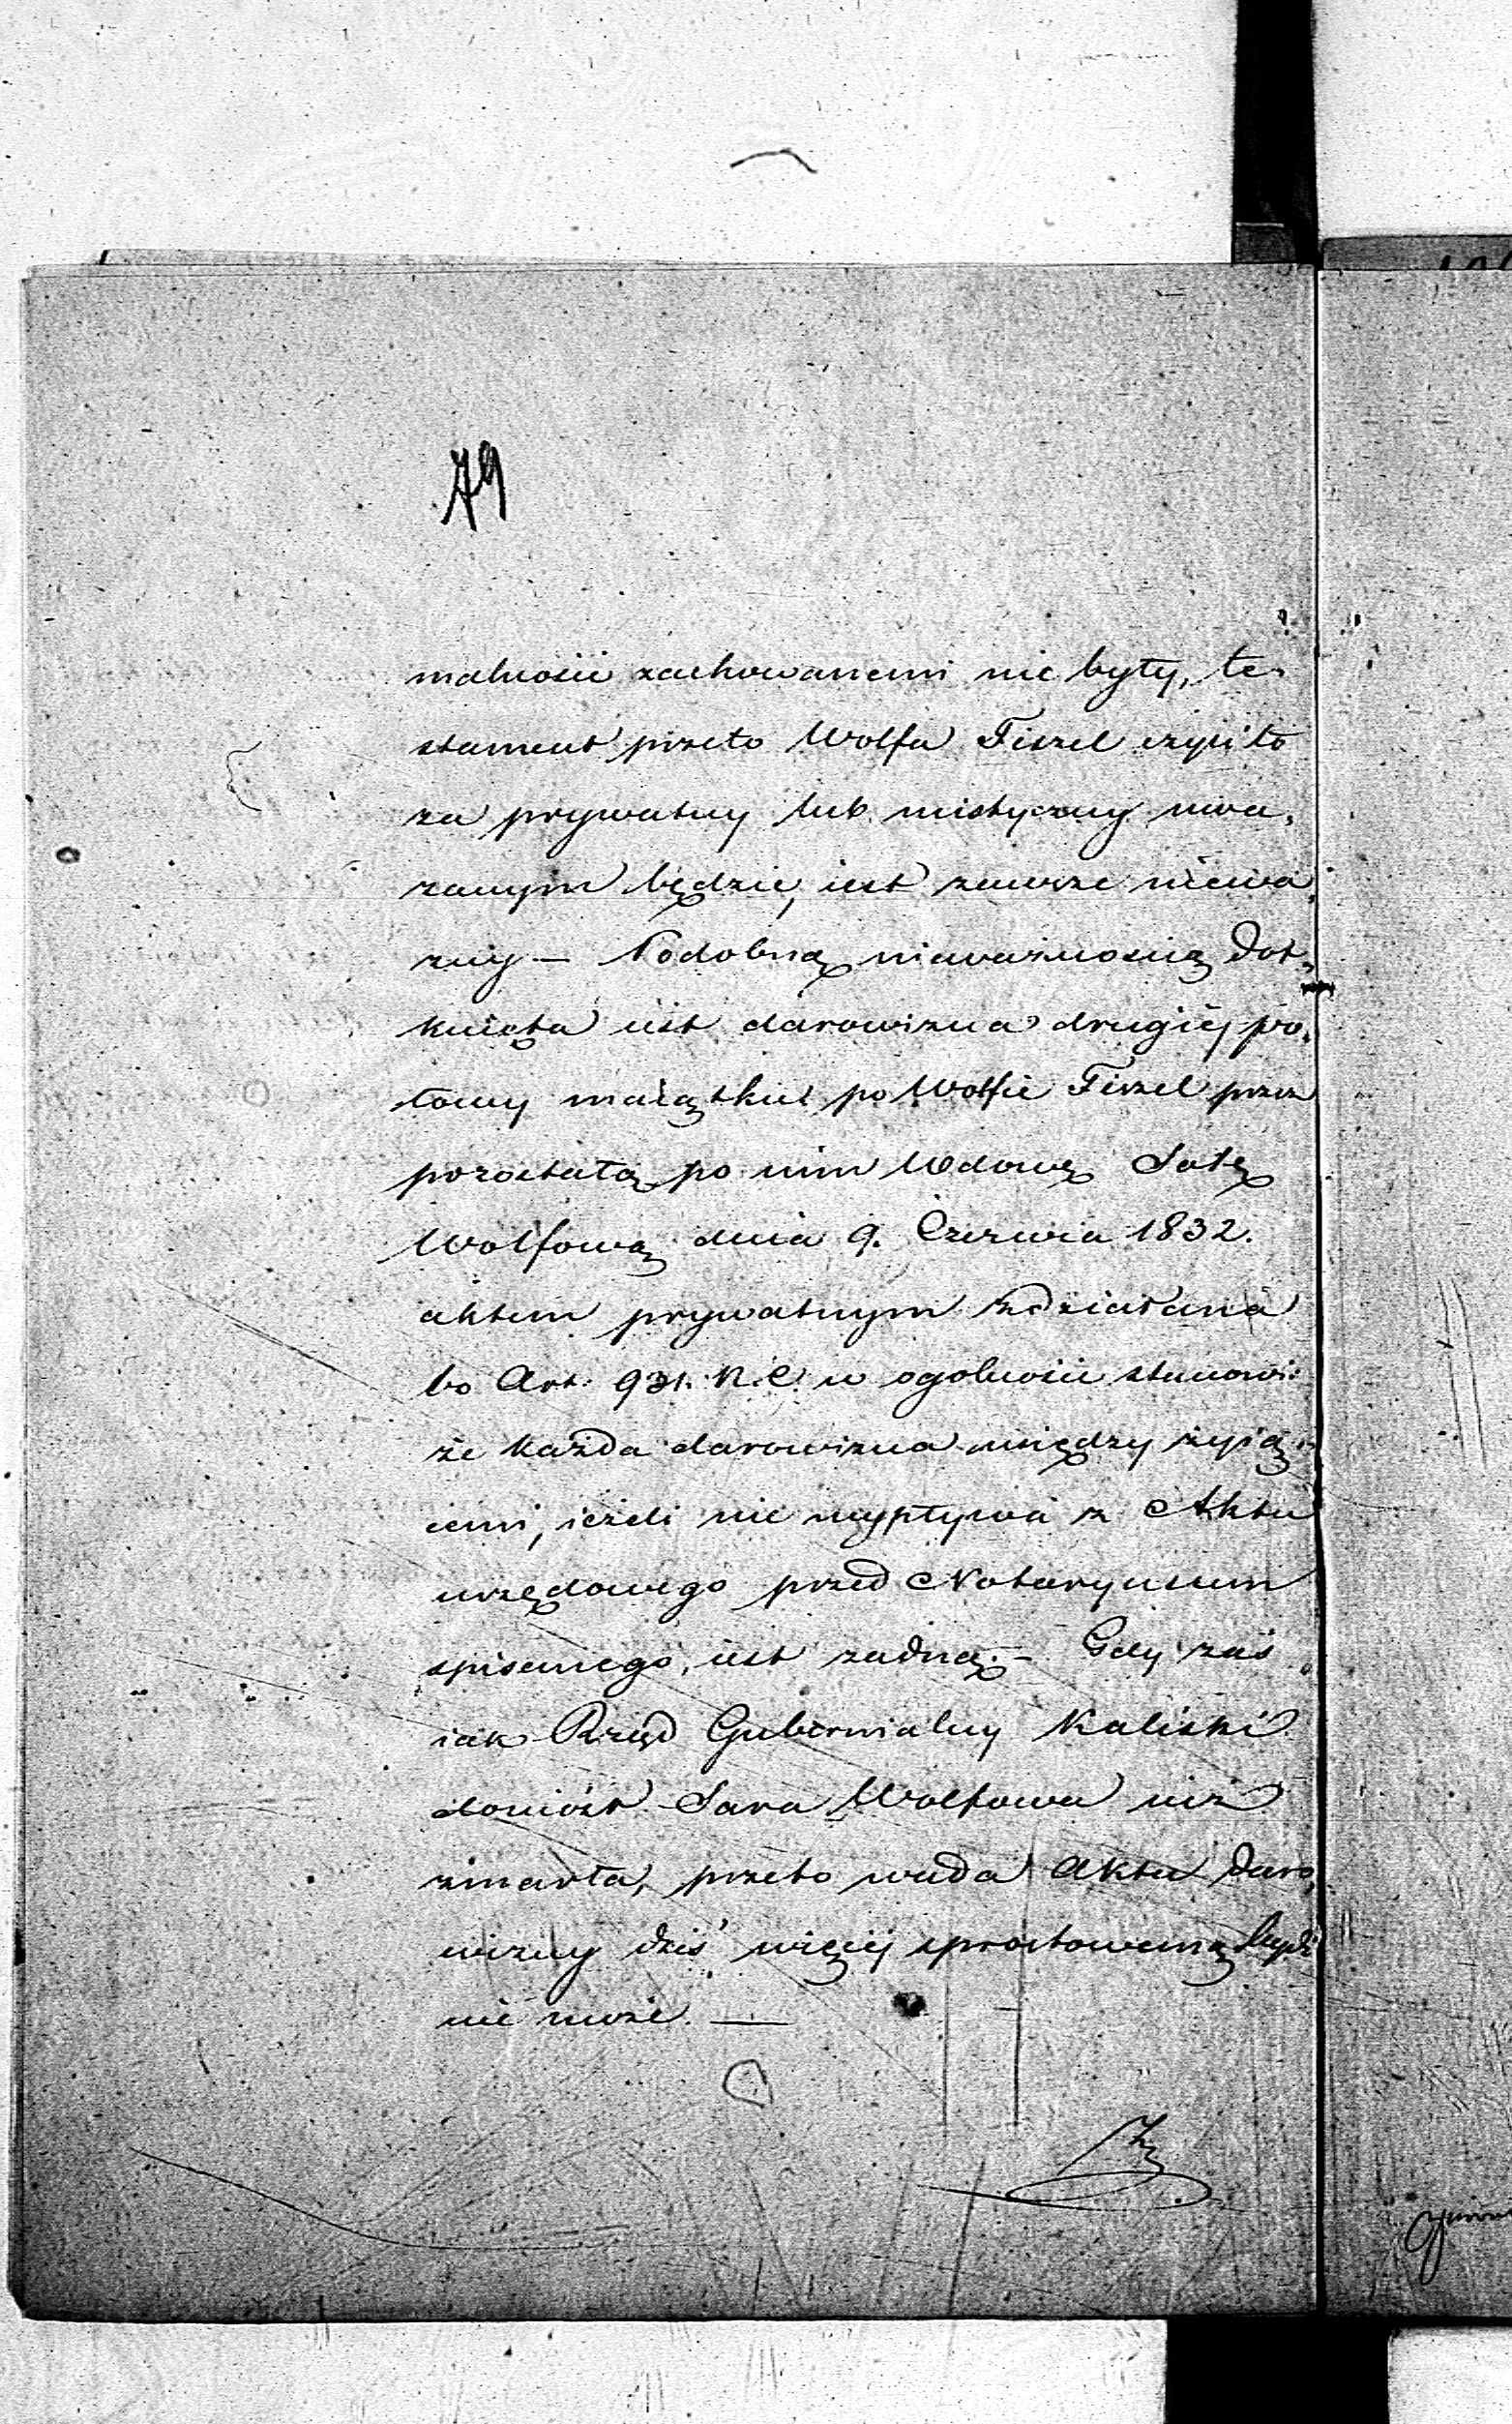 79
malności zachowanemi nie były, te-
stament przeto Wolfa Fiszel czyli to
za prywatny lub mistyczny uwa-
zanym będzie, iest zawsze niewa-
zny — Podobną nieważnością dot-
knięta iest darowizna drugiéy po-
łowy maiątku po Wolfie Fiszel przez
pozostałą po nim Wdowę Sarę
Wolfową dnia 9. Czerwca 1832.
aktem prywatnym zdziałana
bo Art. 931. K. C. w ogólności stanowi:
że każda darowizna między żyią-
cemi, ieżeli nie wypływa z Aktu
urzędowego przed Notaryuszem
spisanego, iest żadną. — Gdy zaś
iak Rząd Gubernialny Kaliski
doniósł Sara Wolfowa iuż
zmarła, przeto wada Aktu daro-
wizny dziś więcéj sprostowaną bydź
nie może. —